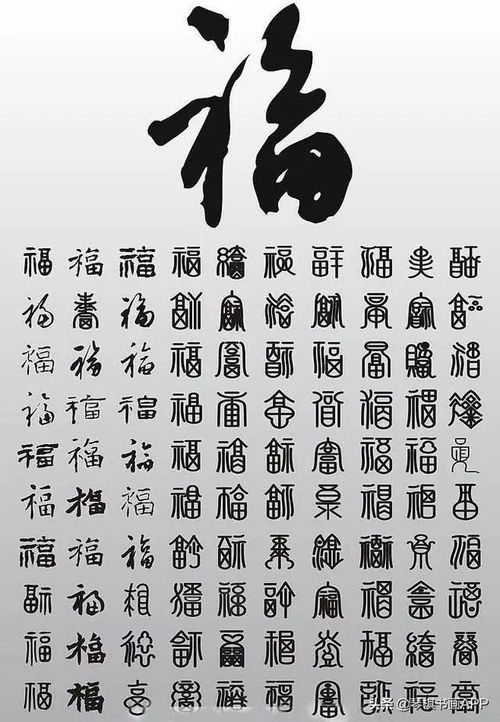 福
福福福福福福福福福福
福福福福福福福福福福
福福福福福福福福福福
福福福福福福福福福福
福福福福福福福福福福
福福福福福福福福福福
福福福福福福福福福福
福福福福福福福福福福
福福福福福福福福福福
福福福福福福福福福福
头条@琴棋书画APP